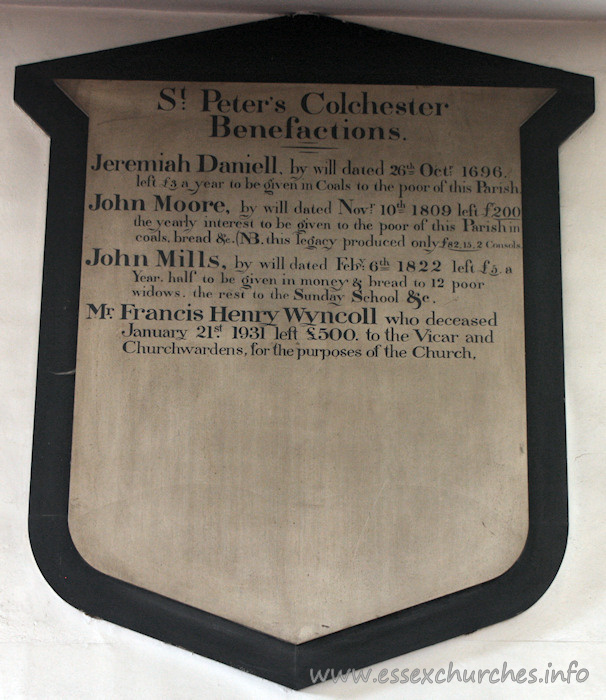 St. Peter's Colchester
Benefactions.
Jeremiah Daniell, by will dated 26th Octr. 1696.
left £3 a year to be given in Coals to the poor of this Parish.
John Moore, by will dated Novr. 10th 1809 left £200
the yearly interest to be given to the poor of this Parish in
coals, bread &c. (NB, this legacy produced only £82.15.2 Consols.
John Mills, by will dated Feby. 6th 1822 left £5, a
Year, half to be given in money & bread to 12 poor
widows, the rest to the Sunday School &c.
Mr. Francis Henry Wyncoll who deceased
January 21st. 1931 left £500. to the Vicar and
Churchwardens, for the purposes of the Church.
www.essexchurches.info